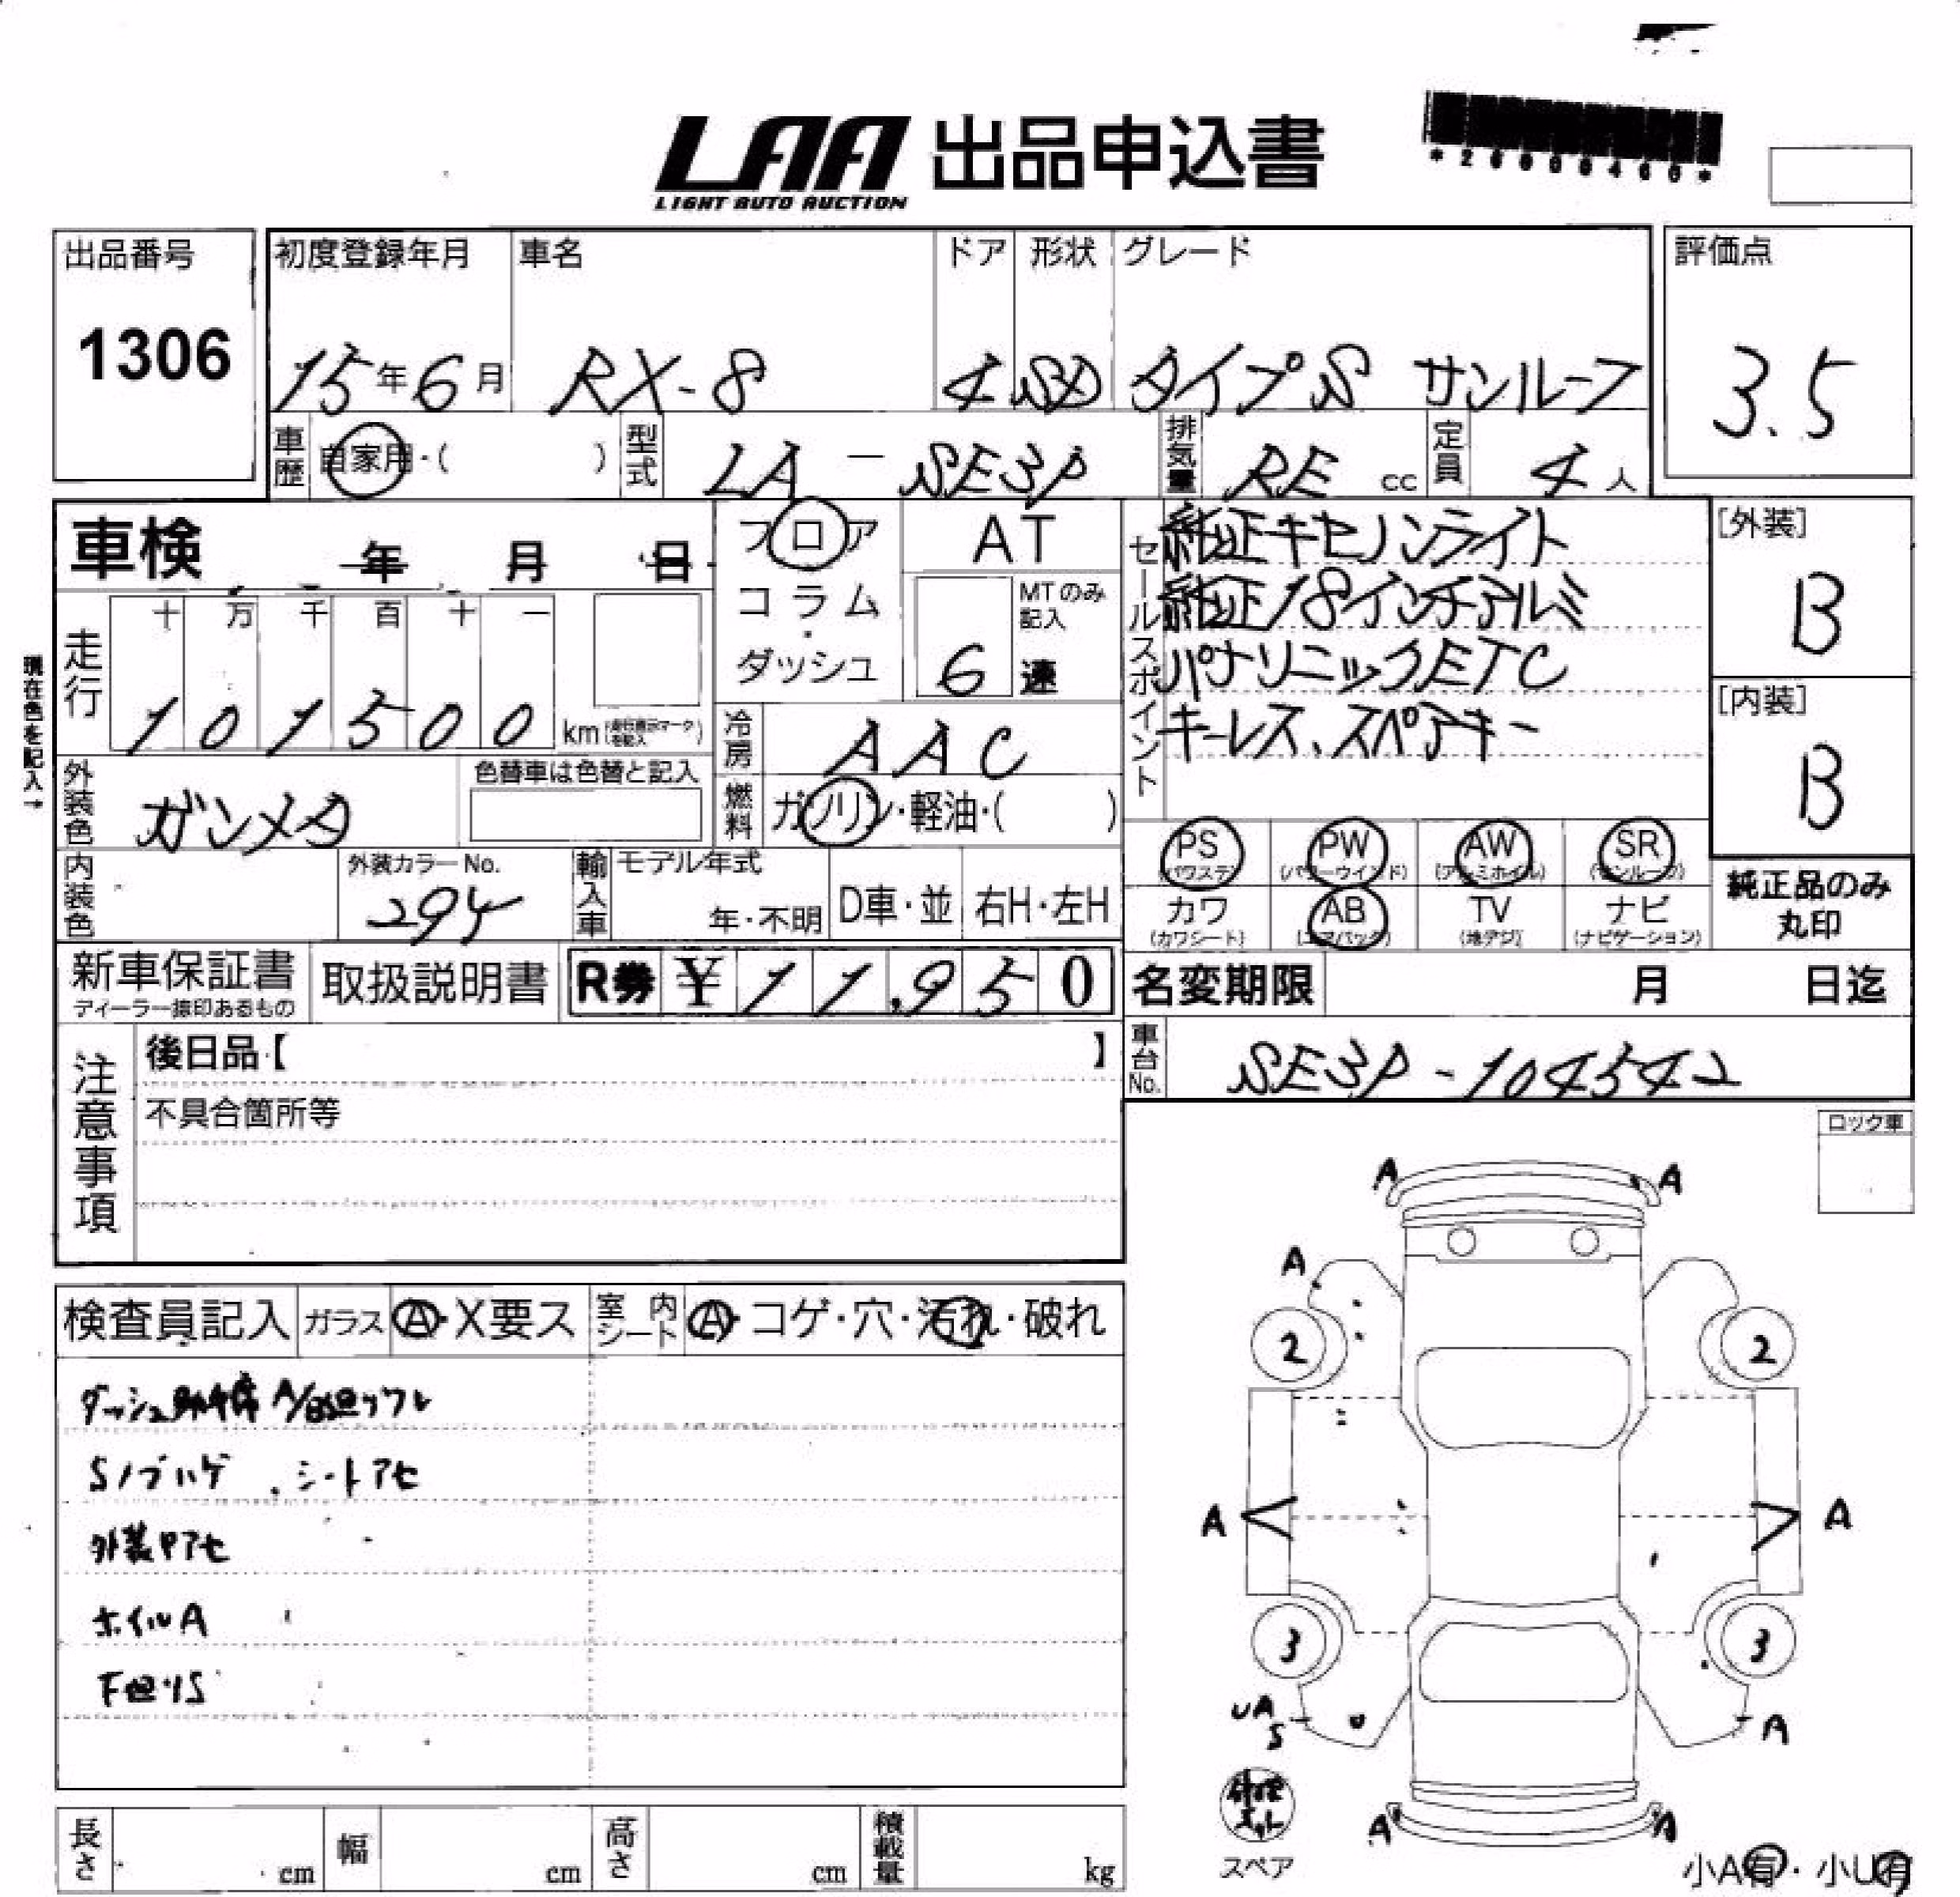 LAA 出品申込書
LIGHT AUTO AUCTION
*26000460*
出品番号
1306
初度登録年月 車名 ドア 形状 グレード
15年6月 RX-8 4 SD タイプS サンルーフ
評価点
3.5
車歴 自家用・( ) 型式 LA-SE3P 排気量 RE cc 定員 4人
車検 年 月 日
フロア
コラム
・
ダッシュ
AT
MTのみ記入
6速
セールスポイント
純正キセノンライト
純正18インチアルミ
パナソニックETC
キーレス、スペアキー
[外装]
B
[内装]
B
現在色を記入→
走行 十 万 千 百 十 一
101500 km
冷房 AAC
外装色 ガンメタ
色替車は色替と記入
燃料 ガソリン・軽油・( )
内装色
外装カラーNo.
294
輸入車 モデル年式
年・不明 D車・並 右H・左H
PS PW AW SR
(パワステ) (パワーウインド) (アルミホイル) (サンルーフ)
カワ AB TV ナビ
(カワシート) (エアバック) (地デジ) (ナビゲーション)
純正品のみ
丸印
新車保証書
ディーラー捺印あるもの
取扱説明書
R券 ¥11,950
名変期限 月 日迄
車台No. SE3P-104542
注意事項
後日品【 】
不具合箇所等
ロック車
検査員記入 ガラス A・X要ス 室内シート A・コゲ・穴・汚れ・破れ
ダッシュ助手席A/
Sノブハゲ、シートアセ
外装Pアセ
ホイルA
A A
A
2 2
A A
3 3
UA
S
A
A A
スペア
長さ cm 幅 cm 高さ cm 積載量 kg
小A有・小U有